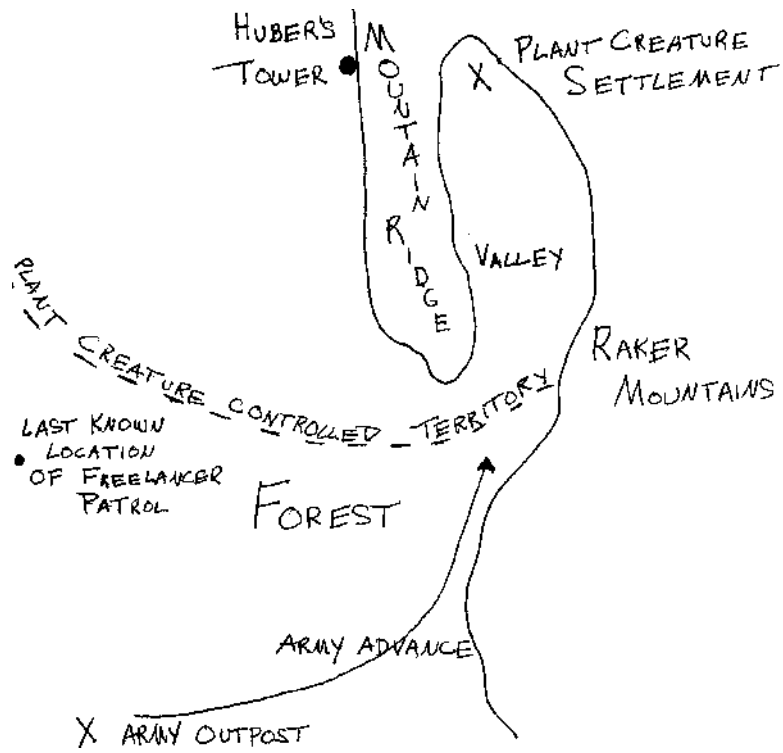 HUBER'S
TOWER
MOUNTAIN
RIDGE
PLANT CREATURE
SETTLEMENT
X
VALLEY
RAKER
MOUNTAINS
PLANT CREATURE CONTROLLED TERRITORY
LAST KNOWN
LOCATION
OF FREELANCER
PATROL
FOREST
ARMY ADVANCE
X ARMY OUTPOST